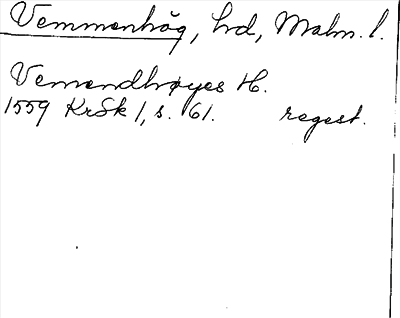 Vemmenhög, hd, Malm. l.
Vemendhøyes H.
1559 KrSk 1, s. 61. regest.